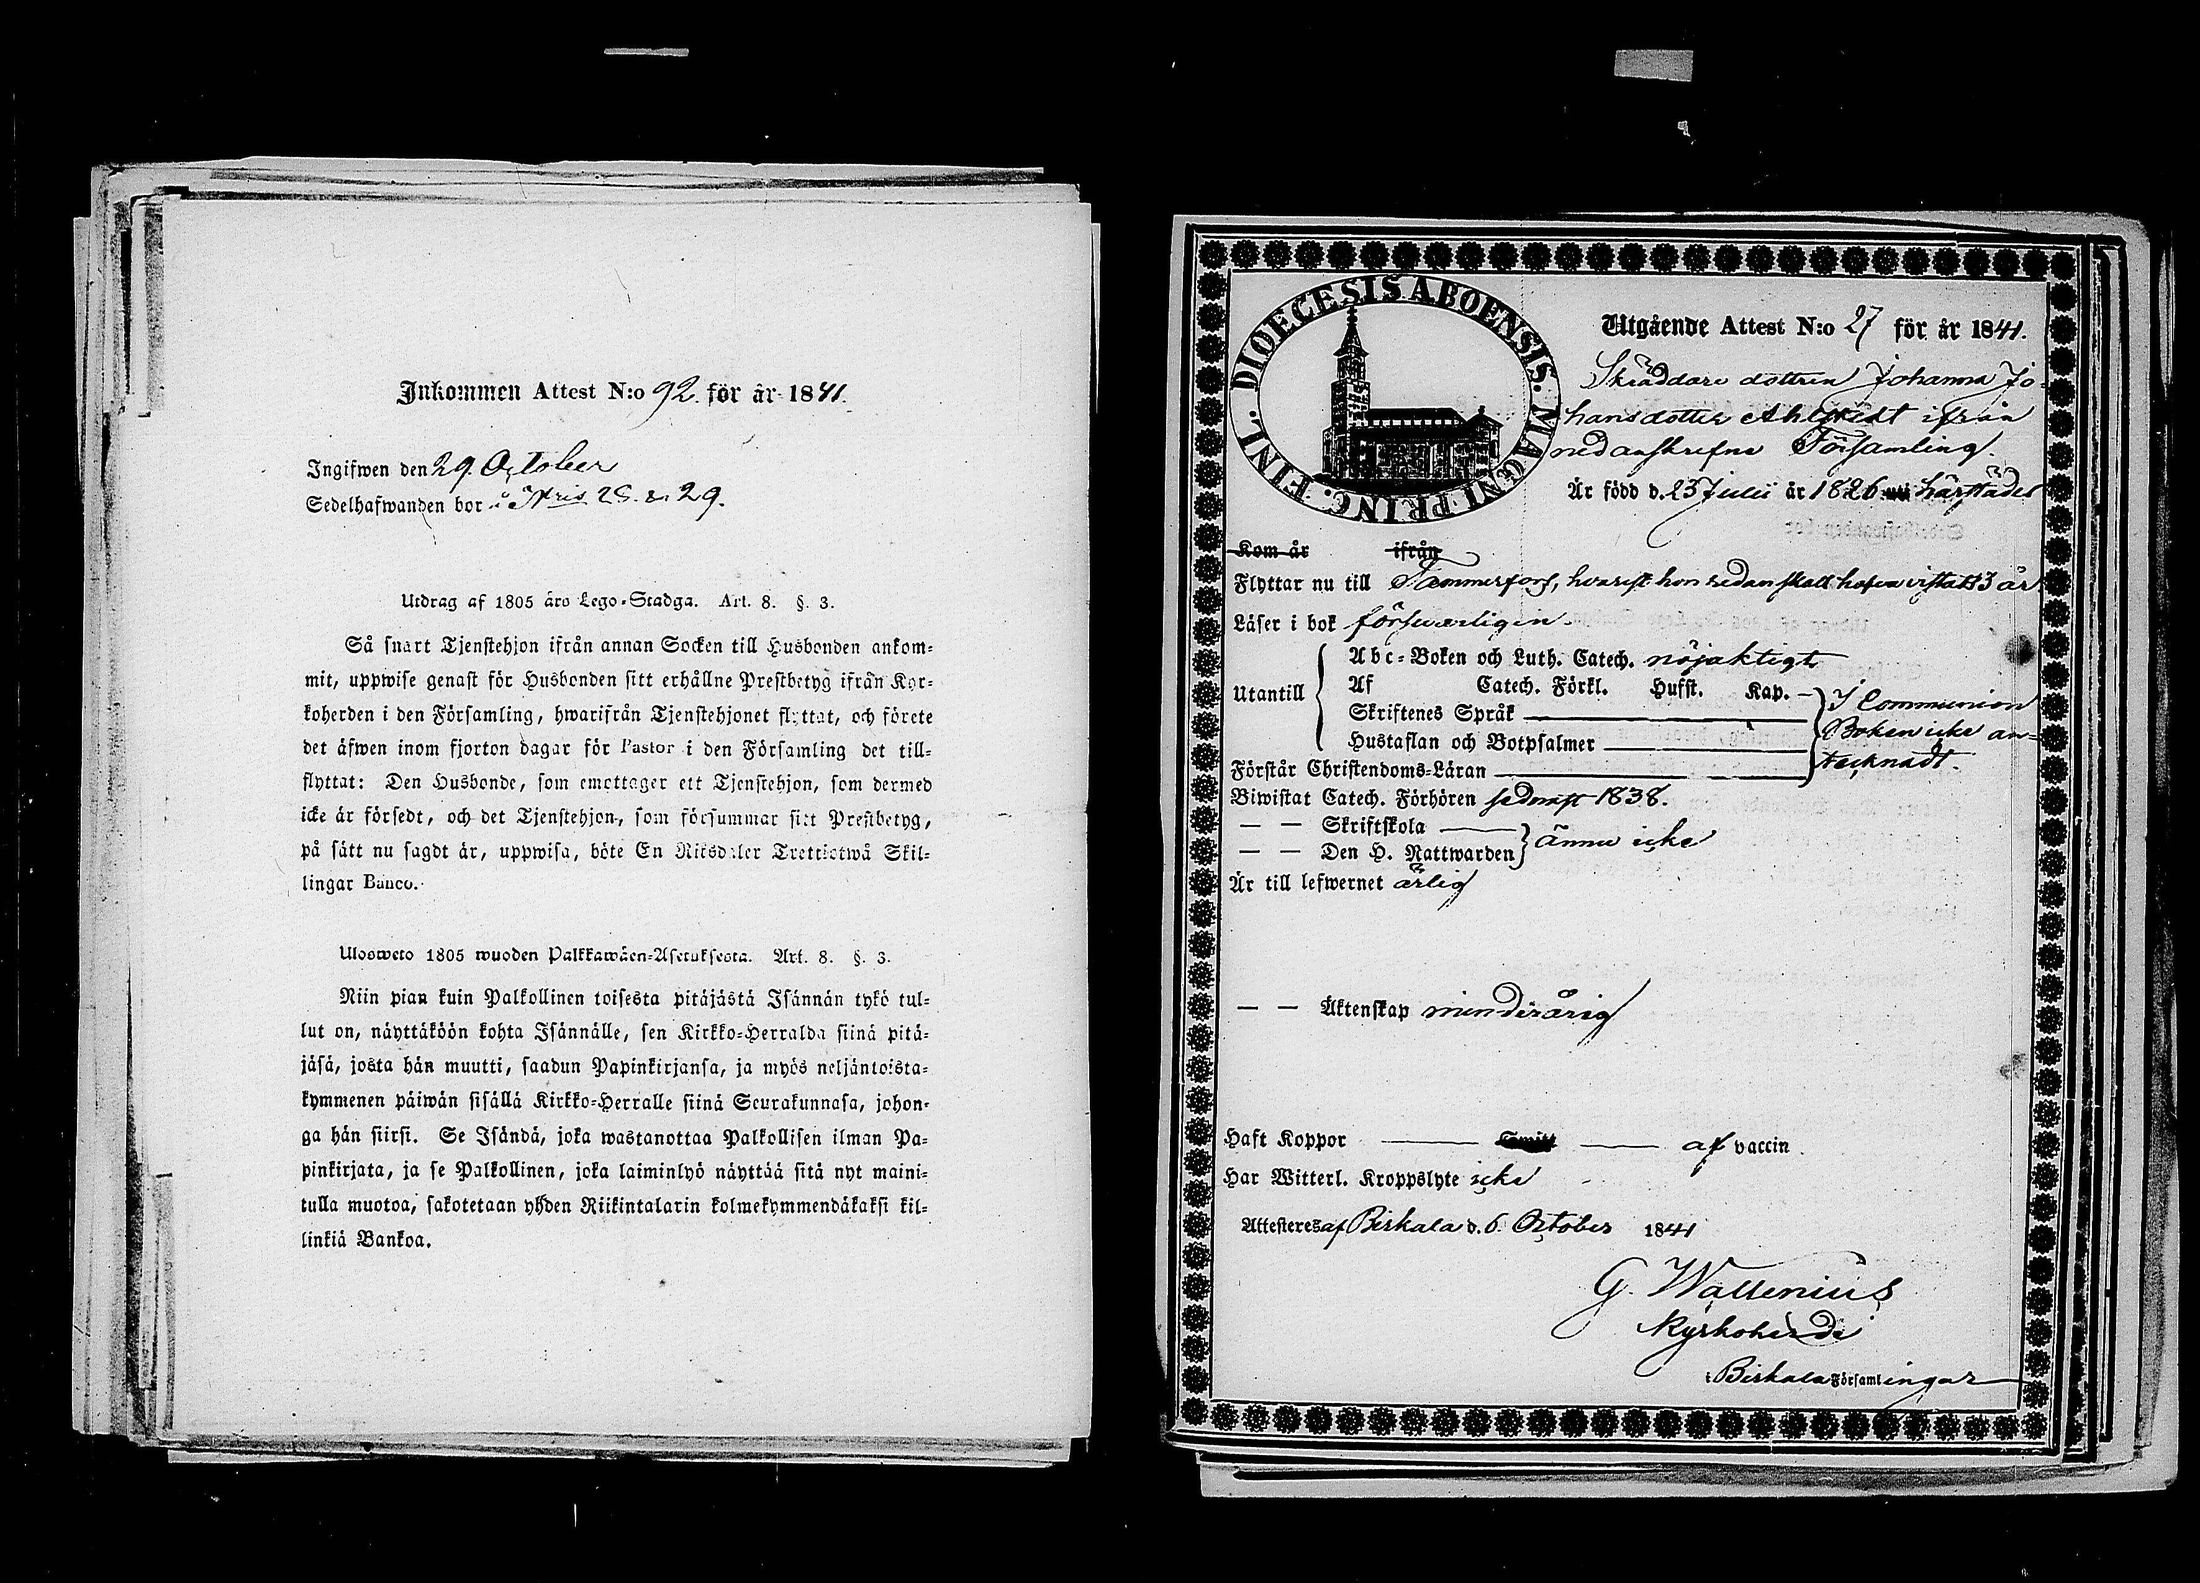 Inkommen Attest N:o 92. för år 1841.
Ingifwen den 29. October
Sedelhafwanden bor å N:ris 28. & 29.
Utdrag af 1805 års Lego-Stadga. Art. 8. §. 3.
Så snart Tjenstehjon ifrån annan Socken till Husbonden ankom-
mit, uppwise genast för Husbonden sitt erhållne Prestbetyg ifrån Kyr-
koherden i den Församling, hwarifrån Tjenstehjonet flyttat, och förete
det äfwen inom fjorton dagar för Pastor i den Församling det till-
flyttat: Den Husbonde, som emottager ett Tjenstehjon, som dermed
icke är försedt, och det Tjenstehjon, som försummar sitt Prestbetyg,
på sätt nu sagdt är, uppwisa, böte En Riksdaler Trettiotwå Skil-
lingar Banco.
Ulosweto 1805 wuoden Palkkawäen-Asetuksesta. Art. 8. §. 3.
Niin pian kuin Palkollinen toisesta pitäjästä Isännän tykö tul-
lut on, näyttäköön kohta Isännälle, sen Kirkko-Herralda siinä pitä-
jäsä, josta hän muutti, saadun Papinkirjansa, ja myös neljäntoista-
kymmenen päiwän sisällä Kirkko-Herralle siinä Seurakunnasa, johon-
ga hän siirsi. Se Isändä, joka wastanottaa Palkollisen ilman Pa-
pinkirjata, ja se Palkollinen, joka laiminlyö näyttää sitä nyt maini-
tulla muotoa, sakotetaan yhden Riikintalarin kolmekymmendäkaksi kil-
linkiä Bankoa.
DIOECESIS ABOENSIS. MAGNI PRINC. FINL.
Utgående Attest N:o 27 för år 1841.
Skräddare dottren Johanna Jo-
hansdotter ifrån
nedanskrefne Församling.
Är född d. 23 Julii år 1826 härstädes
Kom år ifrån
Flyttar nu till Tammerfors, hvarest hon redan skall hafva vistats 3 år
Läser i bok försvarligen.
Utantill
Abc-Boken och Luth. Catech. nöjaktigt
Af Catech. Förkl. Hufst. Kap. -
Skriftenes Språk
Hustaflan och Botpsalmer
Förstår Christendoms-Läran
I Communion
Boken icke an-
tecknadt.
Biwistat Catech. Förhören sednast 1838.
— — Skriftskola
— — Den H. Nattwarden
ännu icke
Är till lefwernet ärlig
— — Äktenskap minderårig
Haft Koppor af vaccin.
Har Witterl. Kroppslyte icke
Attesteres af Birkala d. 6. October 1841
G. Wallenius
Kyrkoherde
i Birkala Församlingar